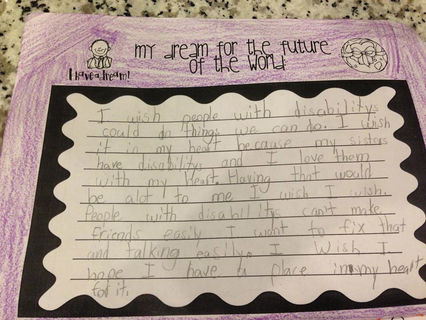 my dream for the future
of the world
I have a dream!
I wish people with disabilitys
could do things we can do. I wish
it in my heart because my sisters
have disabilitys and I love them
with my Heart. Having that would
be alot to me I wish I wish.
People with disabilitys can't make
friends easily I want to fix that
and talking easily. I Wish I
hope I have a place in my heart
for it.